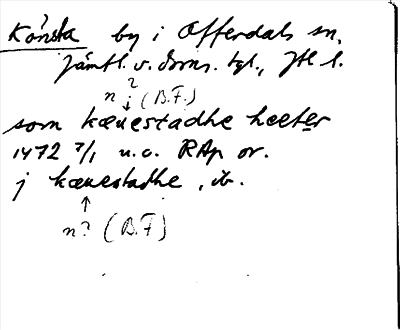 Kónsta by i Offerdals sn,
Jämtl. v. doms. tgl., Jtl l.
n ? (B.F.)
som kæuestadhe heeter
1472 7/1 u.o. RAp or.
j kæuestadhe, ib.
n? (B.F)